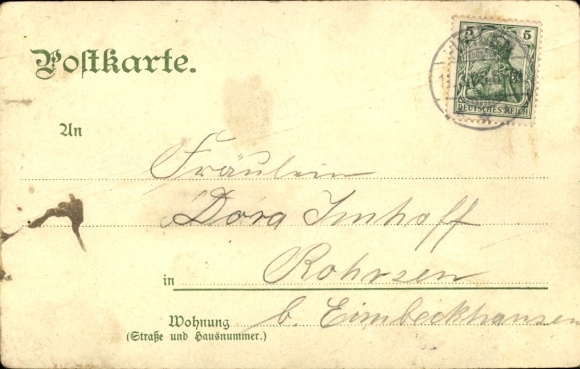 Postkarte.
5 5
DEUTSCHES REICH
An
Fräulein
Dora Imhoff
in Rohrsen
b. Eimbeckhausen
Wohnung
(Straße und Hausnummer.)